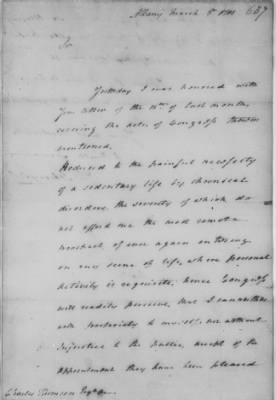 Albany March 8th 1781 637
Sir
Yesterday I was honored with
Your letter of the of last month
covering the acts of Congress therein
mentioned.
Reduced to the painful necessity
of a sedentary life by chronical
disorders the severity of which do
not afford me the most remote
prospect of ever again entering
on any scene of life, where personal
activity is requisite; hence Congress
will readily perceive, that I cannot
with to myself, nor without
injustice to the Public, accept of the
appointment they have been pleased
Charles Thomson Esqr